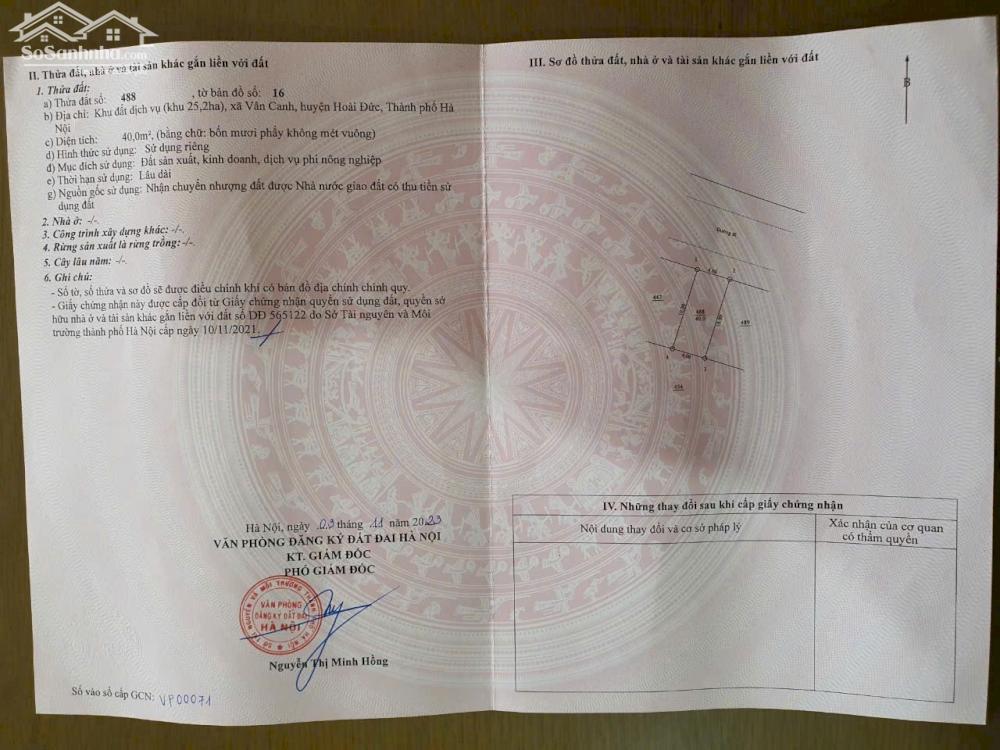 SoSanhnha.com
II. Thửa đất, nhà ở và tài sản khác gắn liền với đất
1. Thửa đất:
a) Thửa đất số: 488 , tờ bản đồ số: 16
b) Địa chỉ: Khu đất dịch vụ (khu 25,2ha), xã Vân Canh, huyện Hoài Đức, Thành phố Hà
Nội
c) Diện tích: 40,0m², (bằng chữ: bốn mươi phẩy không mét vuông)
d) Hình thức sử dụng: Sử dụng riêng
đ) Mục đích sử dụng: Đất sản xuất, kinh doanh, dịch vụ phi nông nghiệp
e) Thời hạn sử dụng: Lâu dài
g) Nguồn gốc sử dụng: Nhận chuyển nhượng đất được Nhà nước giao đất có thu tiền sử
dụng đất
2. Nhà ở: -/-.
3. Công trình xây dựng khác: -/-.
4. Rừng sản xuất là rừng trồng: -/-.
5. Cây lâu năm: -/-.
6. Ghi chú:
- Số tờ, số thửa và sơ đồ sẽ được điều chỉnh khi có bản đồ địa chính chính quy.
- Giấy chứng nhận này được cấp đổi từ Giấy chứng nhận quyền sử dụng đất, quyền sở
hữu nhà ở và tài sản khác gắn liền với đất số DĐ 565122 do Sở Tài nguyên và Môi
trường thành phố Hà Nội cấp ngày 10/11/2021.
Hà Nội, ngày 03 tháng 11 năm 2023
VĂN PHÒNG ĐĂNG KÝ ĐẤT ĐAI HÀ NỘI
KT. GIÁM ĐỐC
PHÓ GIÁM ĐỐC
SỞ TÀI NGUYÊN VÀ MÔI TRƯỜNG THÀNH PHỐ HÀ NỘI
VĂN PHÒNG
ĐĂNG KÝ ĐẤT ĐAI
HÀ NỘI
Nguyễn Thị Minh Hồng
Số vào sổ cấp GCN: VP00071
III. Sơ đồ thửa đất, nhà ở và tài sản khác gắn liền với đất
B
Đường đi
1
4.00
2
10.00
488
40.0
10.00
489
4
4.00
3
IV. Những thay đổi sau khi cấp giấy chứng nhận
Nội dung thay đổi và cơ sở pháp lý
Xác nhận của cơ quan
có thẩm quyền